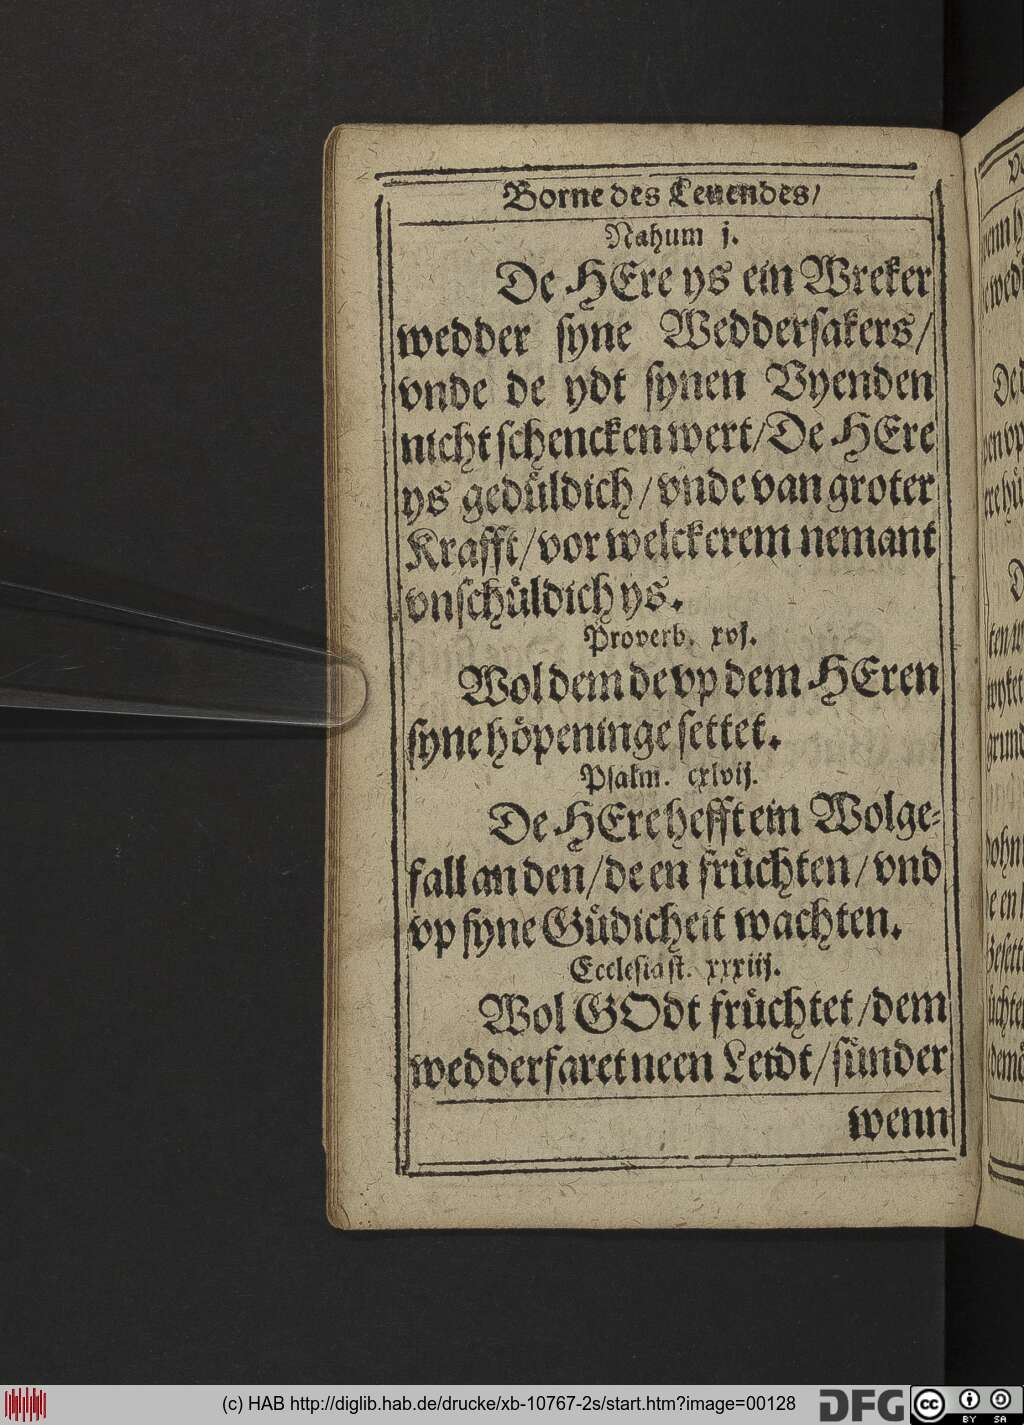 Borne des Leuendes/
Nahum j.
De HEre ys ein Wreker
wedder syne Weddersakers/
vnde de ydt synen Vyenden
nicht schencken wert/De HEre
ys gedůldich/vnde van groter
Krafft/vor welckerem nemant
vnschůldich ys.
Proverb. xvj.
Wol dem de vp dem HEren
syne höpeninge settet.
Psalm. cxlvij.
De HEre hefft ein Wolge-
fall an den/de en früchten/vnd
vp syne Gůdicheit wachten.
Ecclesiast. xxxiij.
Wol GOdt früchtet/dem
wedderfaret neen Leidt/sünder
wenn
(c) HAB http://diglib.hab.de/drucke/xb-10767-2s/start.htm?image=00128
DFG
cc
BY SA